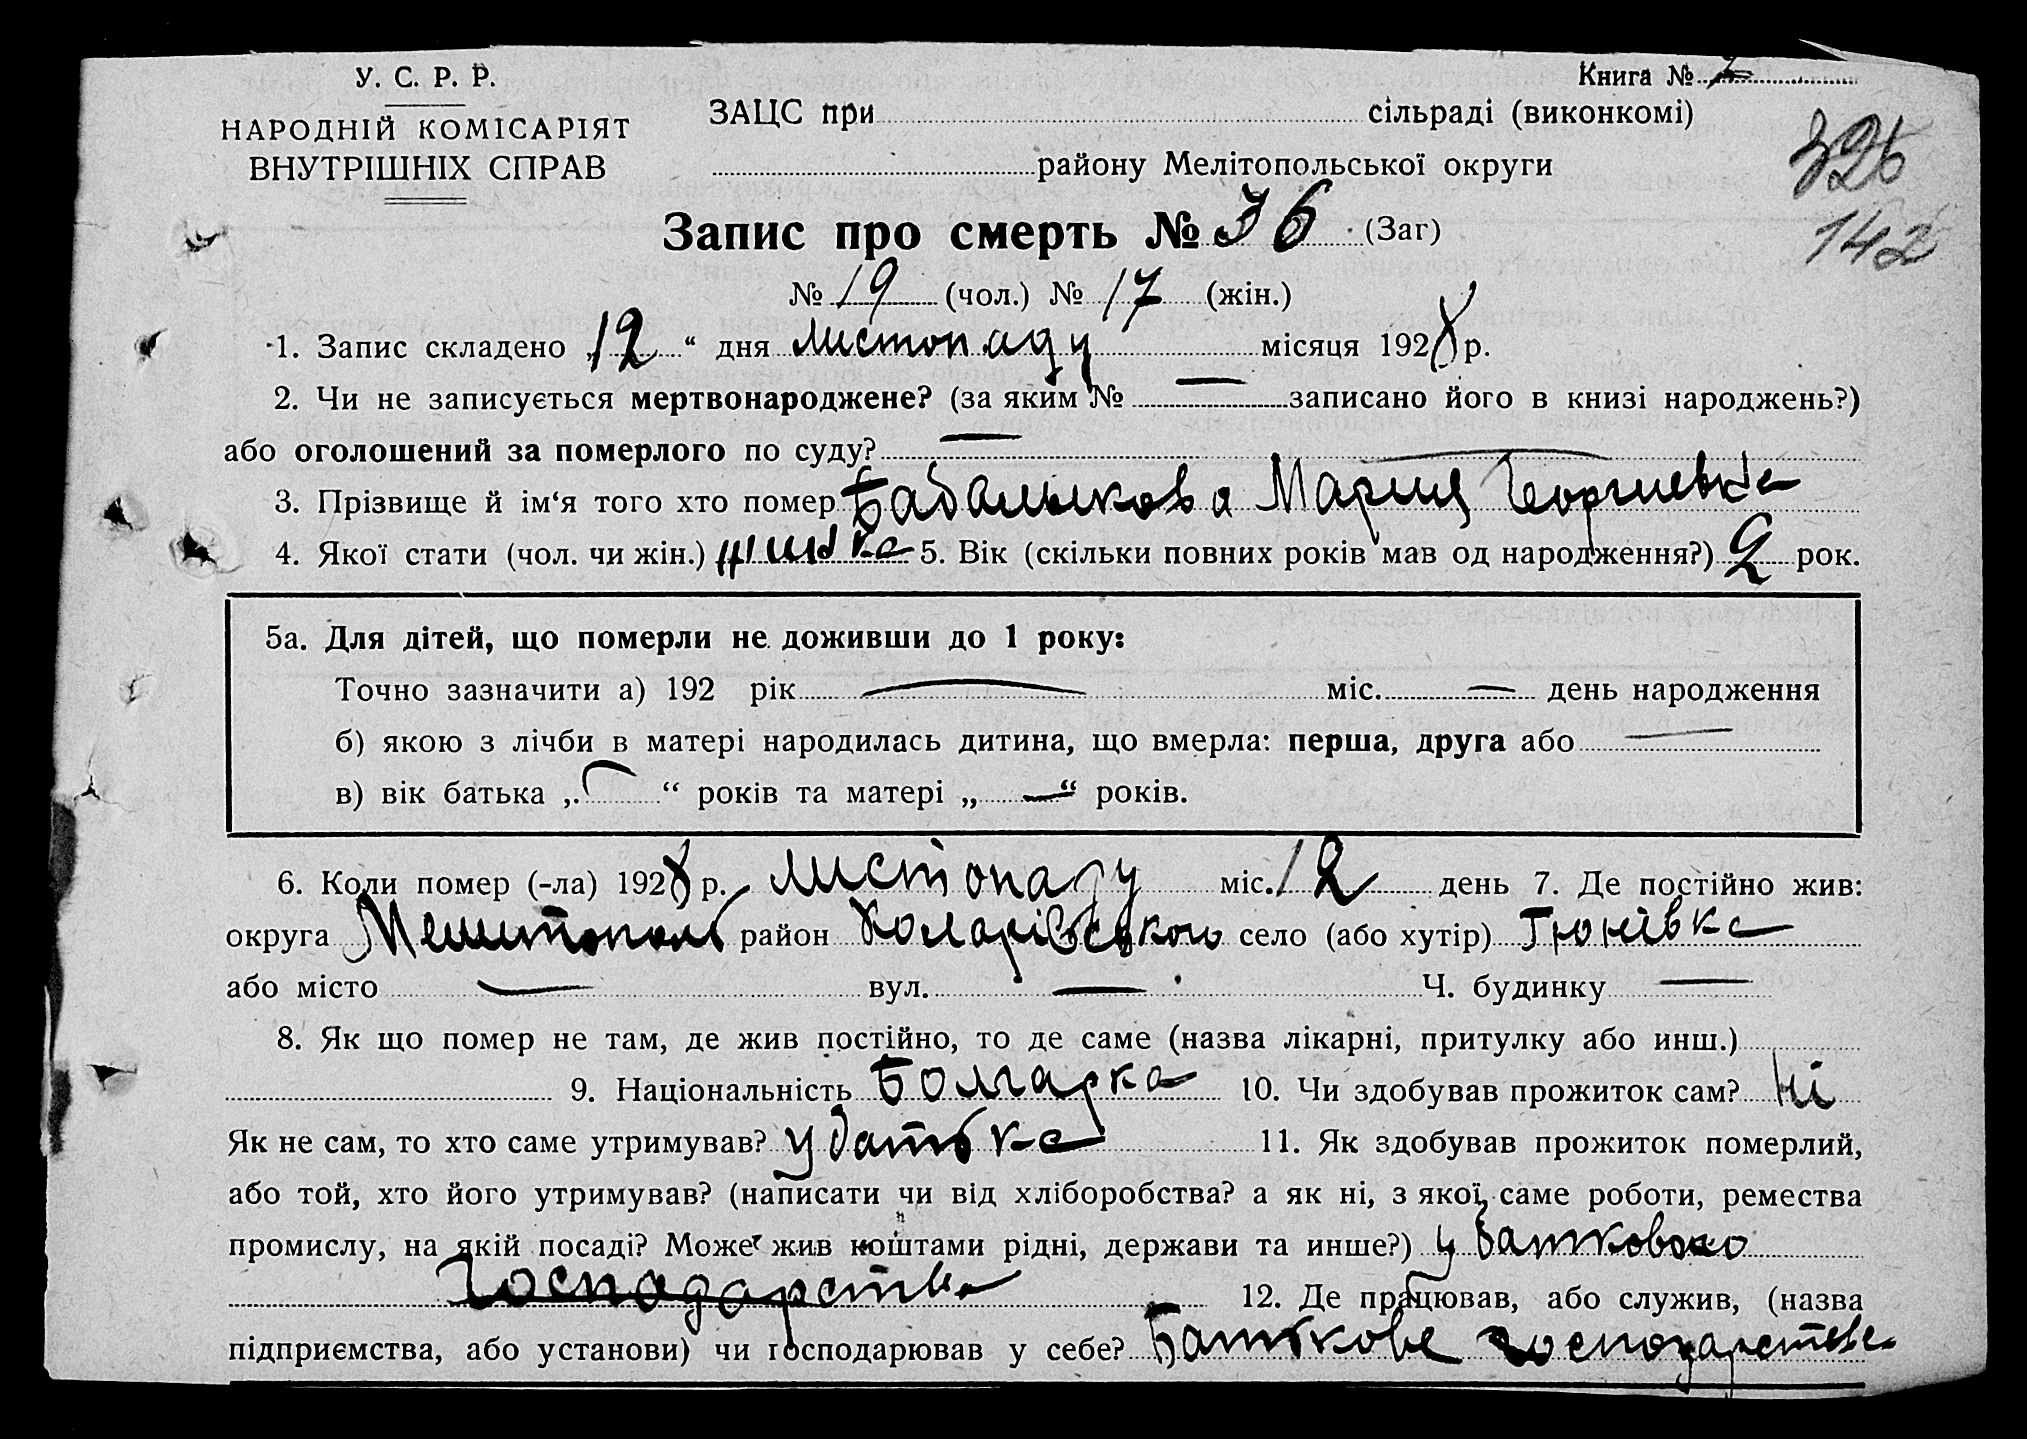 У. С. Р. Р.
НАРОДНІЙ КОМІСАРІЯТ
ВНУТРІШНІХ СПРАВ
Книга №
ЗАЦС при сільраді (виконкомі)
району Мелітопольської округи
326
142
Запис про смерть № 36 (Заг)
№ 19 (чол.) № 17 (жін.)
1. Запис складено „12“ дня листопаду місяця 1928 р.
2. Чи не записується мертвонароджене? (за яким № — записано його в книзі народжень?)
або оголошений за померлого по суду? —
3. Прізвище й ім‘я того хто помер Мария Георгиевна
4. Якої стати (чол. чи жін.) 5. Вік (скільки повних років мав од народження?) 2 рок.
5а. Для дітей, що померли не доживши до 1 року:
Точно зазначити а) 192 рік — міс. — день народження
б) якою з лічби в матері народилась дитина, що вмерла: перша, друга або —
в) вік батька „ “ років та матері „—“ років.
6. Коли помер (-ла) 1928 р. листопаду міс. 12 день 7. Де постійно жив:
округа Мелитополь район Коларівського село (або хутір) Гюнівка
або місто — вул. — Ч. будинку —
8. Як що помер не там, де жив постійно, то де саме (назва лікарні, притулку або инш.)
9. Національність Болгарка 10. Чи здобував прожиток сам? Ні
Як не сам, то хто саме утримував? у батька 11. Як здобував прожиток померлий,
або той, хто його утримував? (написати чи від хліборобства? а як ні, з якої саме роботи, ремества
промислу, на якій посаді? Може жив коштами рідні, держави та инше?) у
господарства 12. Де працював, або служив, (назва
підприємства, або установи) чи господарював у себе? Батькове господарстве